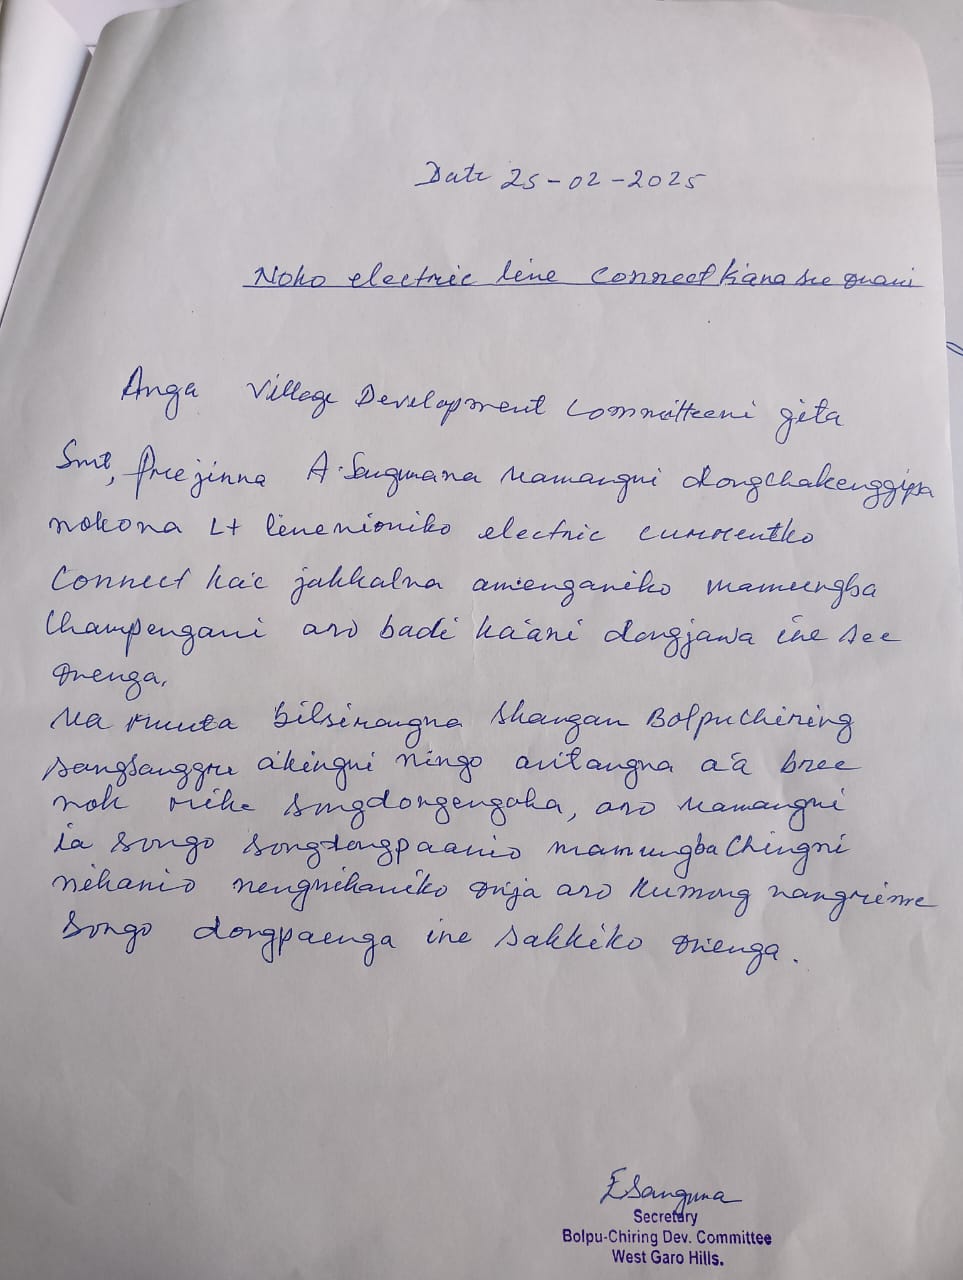 Date 25-02-2025
Noko electric line connect ka'na see onani
Anga Village Development Committeeni gita
Smt, Prejinna A. Sangmana uamangni dongchakenggipa
nokona Lt linenioniko electric currentko
Connect ka'e jakkalna am'enganiko mamungba
Champengani aro badi ka'ani dongjawa ine see
onenga.
Ua bilsirangna skangan Bolpuchiring
sangsanggre a'kingni ningo antangna a'a bree
nok rike songdongengaha, aro uamangni
ia songo songdongpaanio mamungba Chingni
nikanio nengnikaniko onja aro kumong nangrime
songo dongpaenga ine sakkiko onenga.
ESangma
Secretary
Bolpu-Chiring Dev. Committee
West Garo Hills.